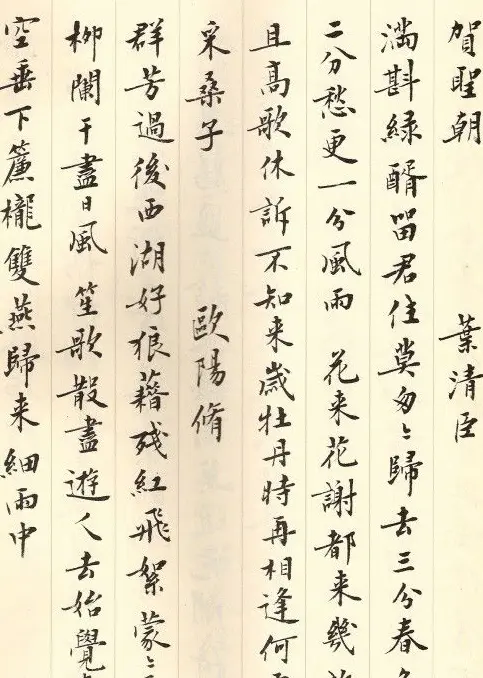 賀聖朝 葉清臣
滿斟綠醑留君住莫匆〻歸去三分春
二分愁更一分風雨 花来花謝都来幾
且高歌休訴不知来歲牡丹時再相逢何
采桑子 歐陽脩
群芳過後西湖好狼藉残紅飛絮蒙〻
柳闌干盡日風 笙歌散盡遊人去始覺
空垂下簾櫳雙燕歸来細雨中